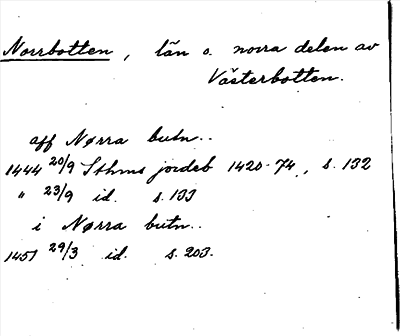 Norrbotten, län o. norra delen av
Västerbotten.
aff Nørra butn..
1444 20/9 Sthms jordeb 1420-74, s. 132
" 23/9 id. s. 133
i Nørra butn..
1451 29/3 id. s. 203.